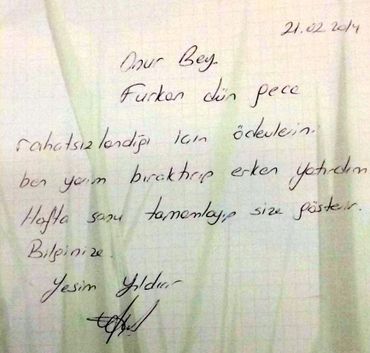 21.02.2014
Onur Bey.
Furkan dün gece
rahatsızlandığı için ödevlerin.
ben yarım bıraktırıp erken yatırdım
Hafta sonu tamamlayıp size gösterir.
Bilginize.
Yeşim Yıldız